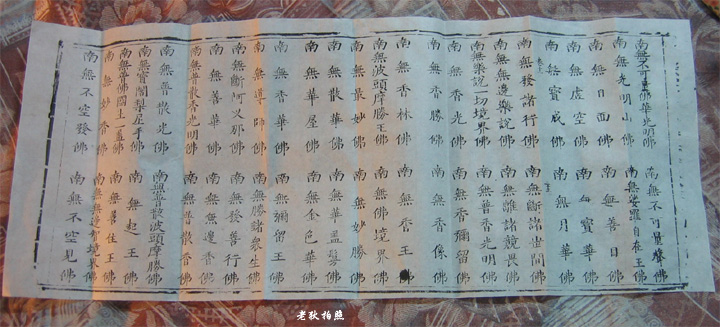 南無不可量佛華光明佛 南無不可量聲佛
南無光明山佛 南無娑羅自在王佛
南無日面佛 南無善目佛
南無虛空佛 南無寶華佛
南無寶威佛 南無月華佛
南無發諸行佛 南無斷諸世間佛
南無無邊樂說佛 南無離諸競畏佛
南無樂說一切境界佛 南無普香光明佛
南無香光佛 南無香彌留佛
南無香勝佛 南無香像佛
南無香林佛 南無香王佛
南無波頭摩勝王佛 南無佛境界佛
南無最妙佛 南無妙勝佛
南無散華佛 南無華蓋鬘佛
南無華屋佛 南無金色華佛
南無香華佛 南無彌留王佛
南無導師佛 南無勝諸衆生佛
南無斷阿叉那佛 南無發善行佛
南無善華佛 南無無邊香佛
南無普散香光明佛 南無普散香佛
南無普散光佛 南無普散波頭摩勝佛
南無寶闍梨尼手佛 南無起王佛
南無普佛國土一蓋佛 南無善住王佛
南無最妙香佛 南無無邊智境界佛
南無不空發佛 南無不空見佛
老狄拍照